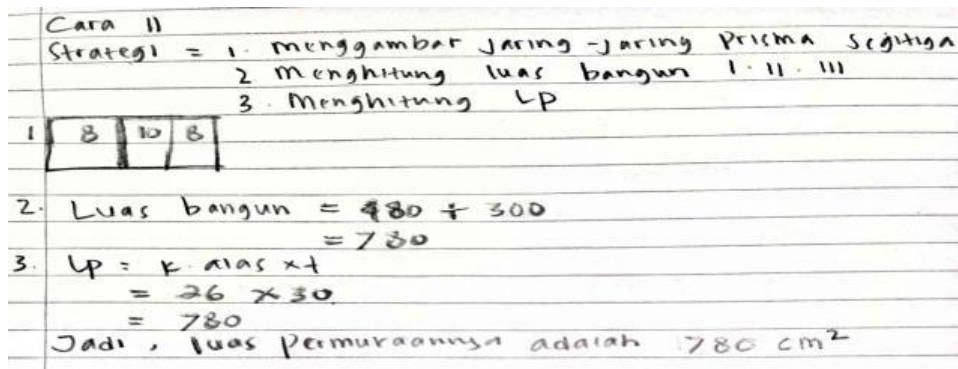 Cara II
Strategi = 1. menggambar jaring-jaring Prisma segitiga
2 Menghitung luas bangun I. II. III
3. Menghitung LP
1 8 10 8
2. Luas bangun = 480 + 300
= 780
3. LP = k. alas x t
= 26 x 30
= 780
Jadi, luas Permuraannya adalah 780 cm²